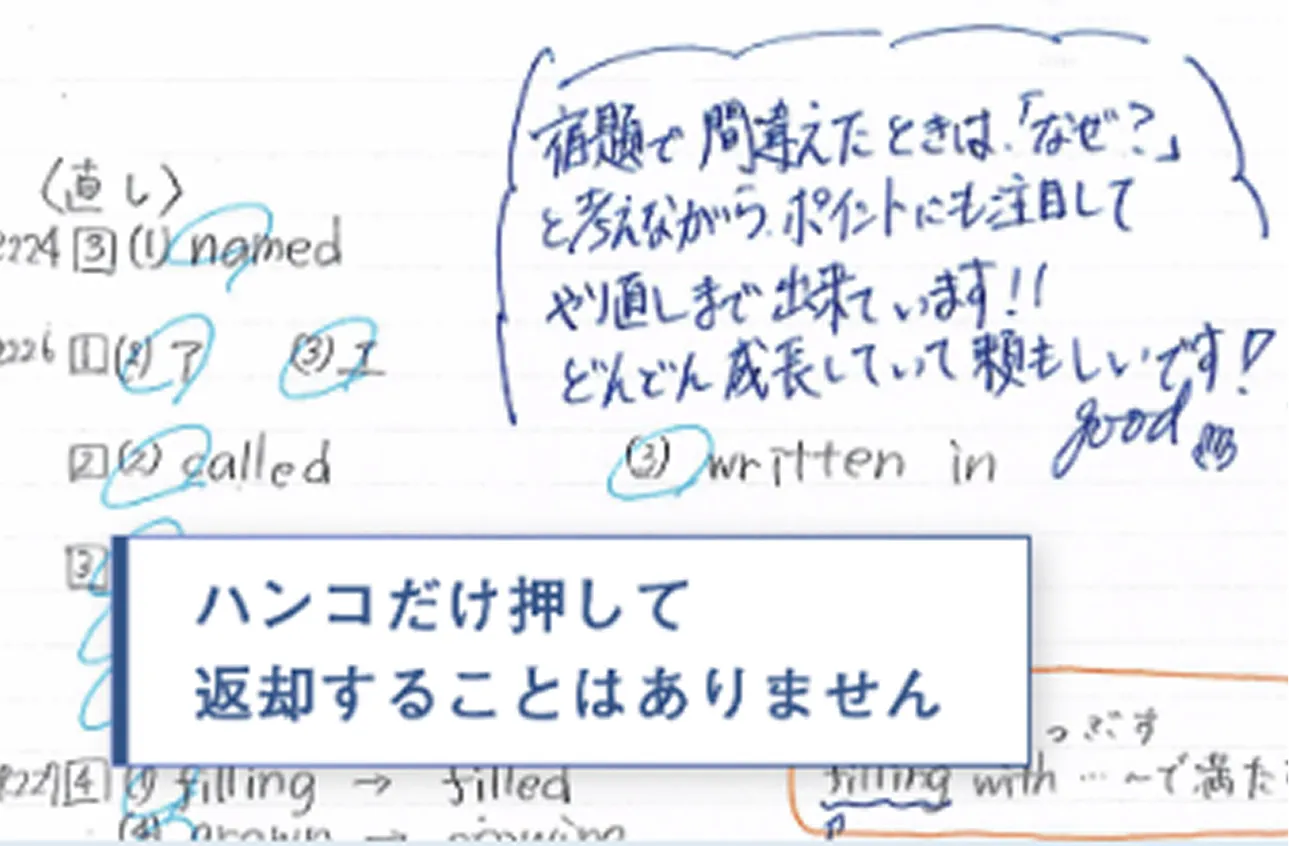 宿題で間違えたときは、「なぜ?」
と考えながら、ポイントにも注目して
やり直しまで出来ています!!
どんどん成長していて頼もしいです!
good
〈直し〉
P224 3 (1) named
P226 1 (2) ア (3) エ
2 (2) called (3) written in
3
ハンコだけ押して
返却することはありません
っぶす
P227 4 (1) filling → filled
filling with … ~で満た
(4) grown → growing